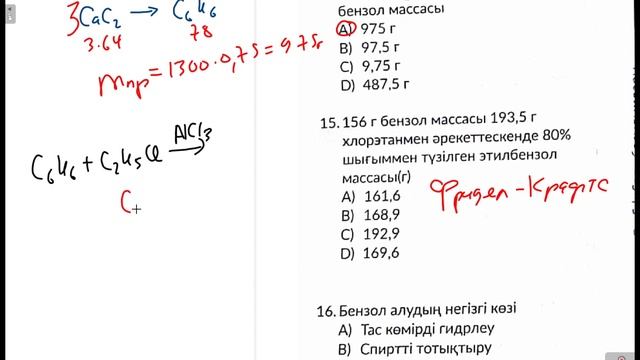 3CaC₂ → C₆H₆
3·64 78
mпр = 1300·0,75 = 975г
C₆H₆ + C₂H₅Cl AlCl₃ →
C
бензол массасы
A) 975 г
B) 97,5 г
C) 9,75 г
D) 487,5 г
15. 156 г бензол массасы 193,5 г
хлорэтанмен әрекеттескенде 80%
шығыммен түзілген этилбензол
массасы(г)
A) 161,6
B) 168,9
C) 192,9
D) 169,6
Фридел-Крафтс
16. Бензол алудың негізгі көзі
A) Тас көмірді гидрлеу
B) Спиртті тотықтыру